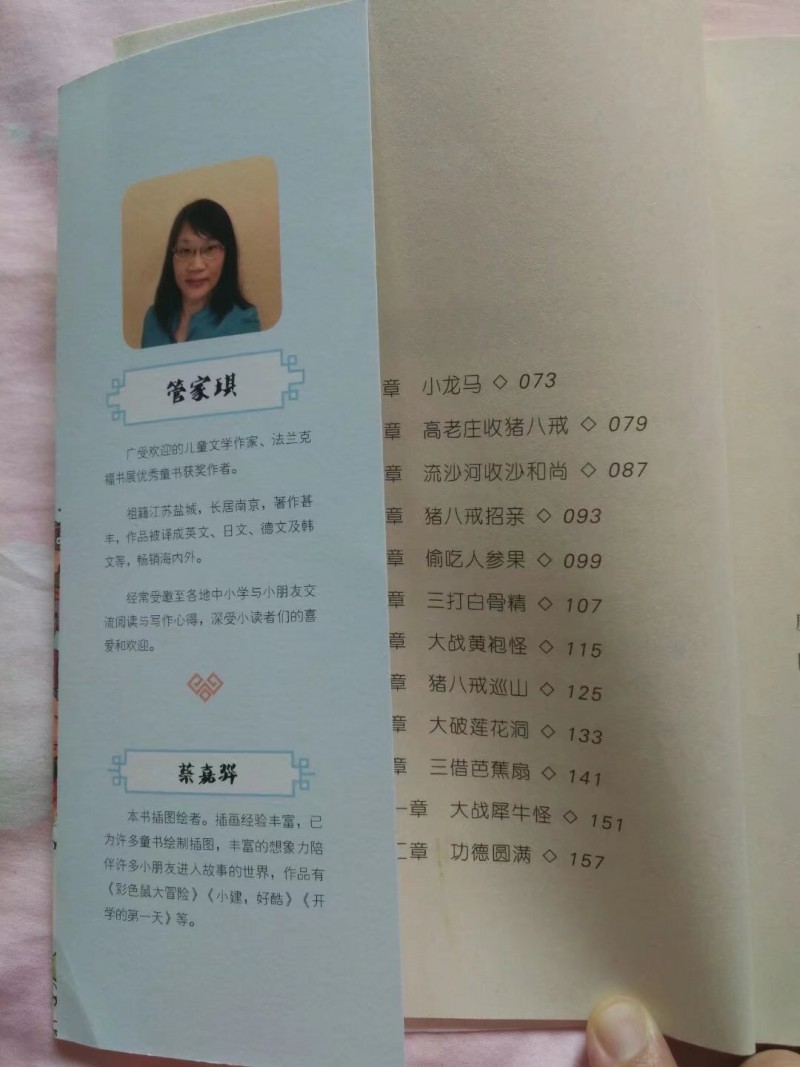 管家琪
广受欢迎的儿童文学作家、法兰克
福书展优秀童书获奖作者。
祖籍江苏盐城，长居南京，著作甚
丰，作品被译成英文、日文、德文及韩
文等，畅销海内外。
经常受邀至各地中小学与小朋友交
流阅读与写作心得，深受小读者们的喜
爱和欢迎。
蔡嘉骅
本书插图绘者。插画经验丰富，已
为许多童书绘制插图，丰富的想象力陪
伴许多小朋友进入故事的世界，作品有
《彩色鼠大冒险》《小建，好酷》《开
学的第一天》等。
章 小龙马 ◇ 073
章 高老庄收猪八戒 ◇ 079
章 流沙河收沙和尚 ◇ 087
章 猪八戒招亲 ◇ 093
章 偷吃人参果 ◇ 099
章 三打白骨精 ◇ 107
章 大战黄袍怪 ◇ 115
章 猪八戒巡山 ◇ 125
章 大破莲花洞 ◇ 133
章 三借芭蕉扇 ◇ 141
一章 大战犀牛怪 ◇ 151
二章 功德圆满 ◇ 157